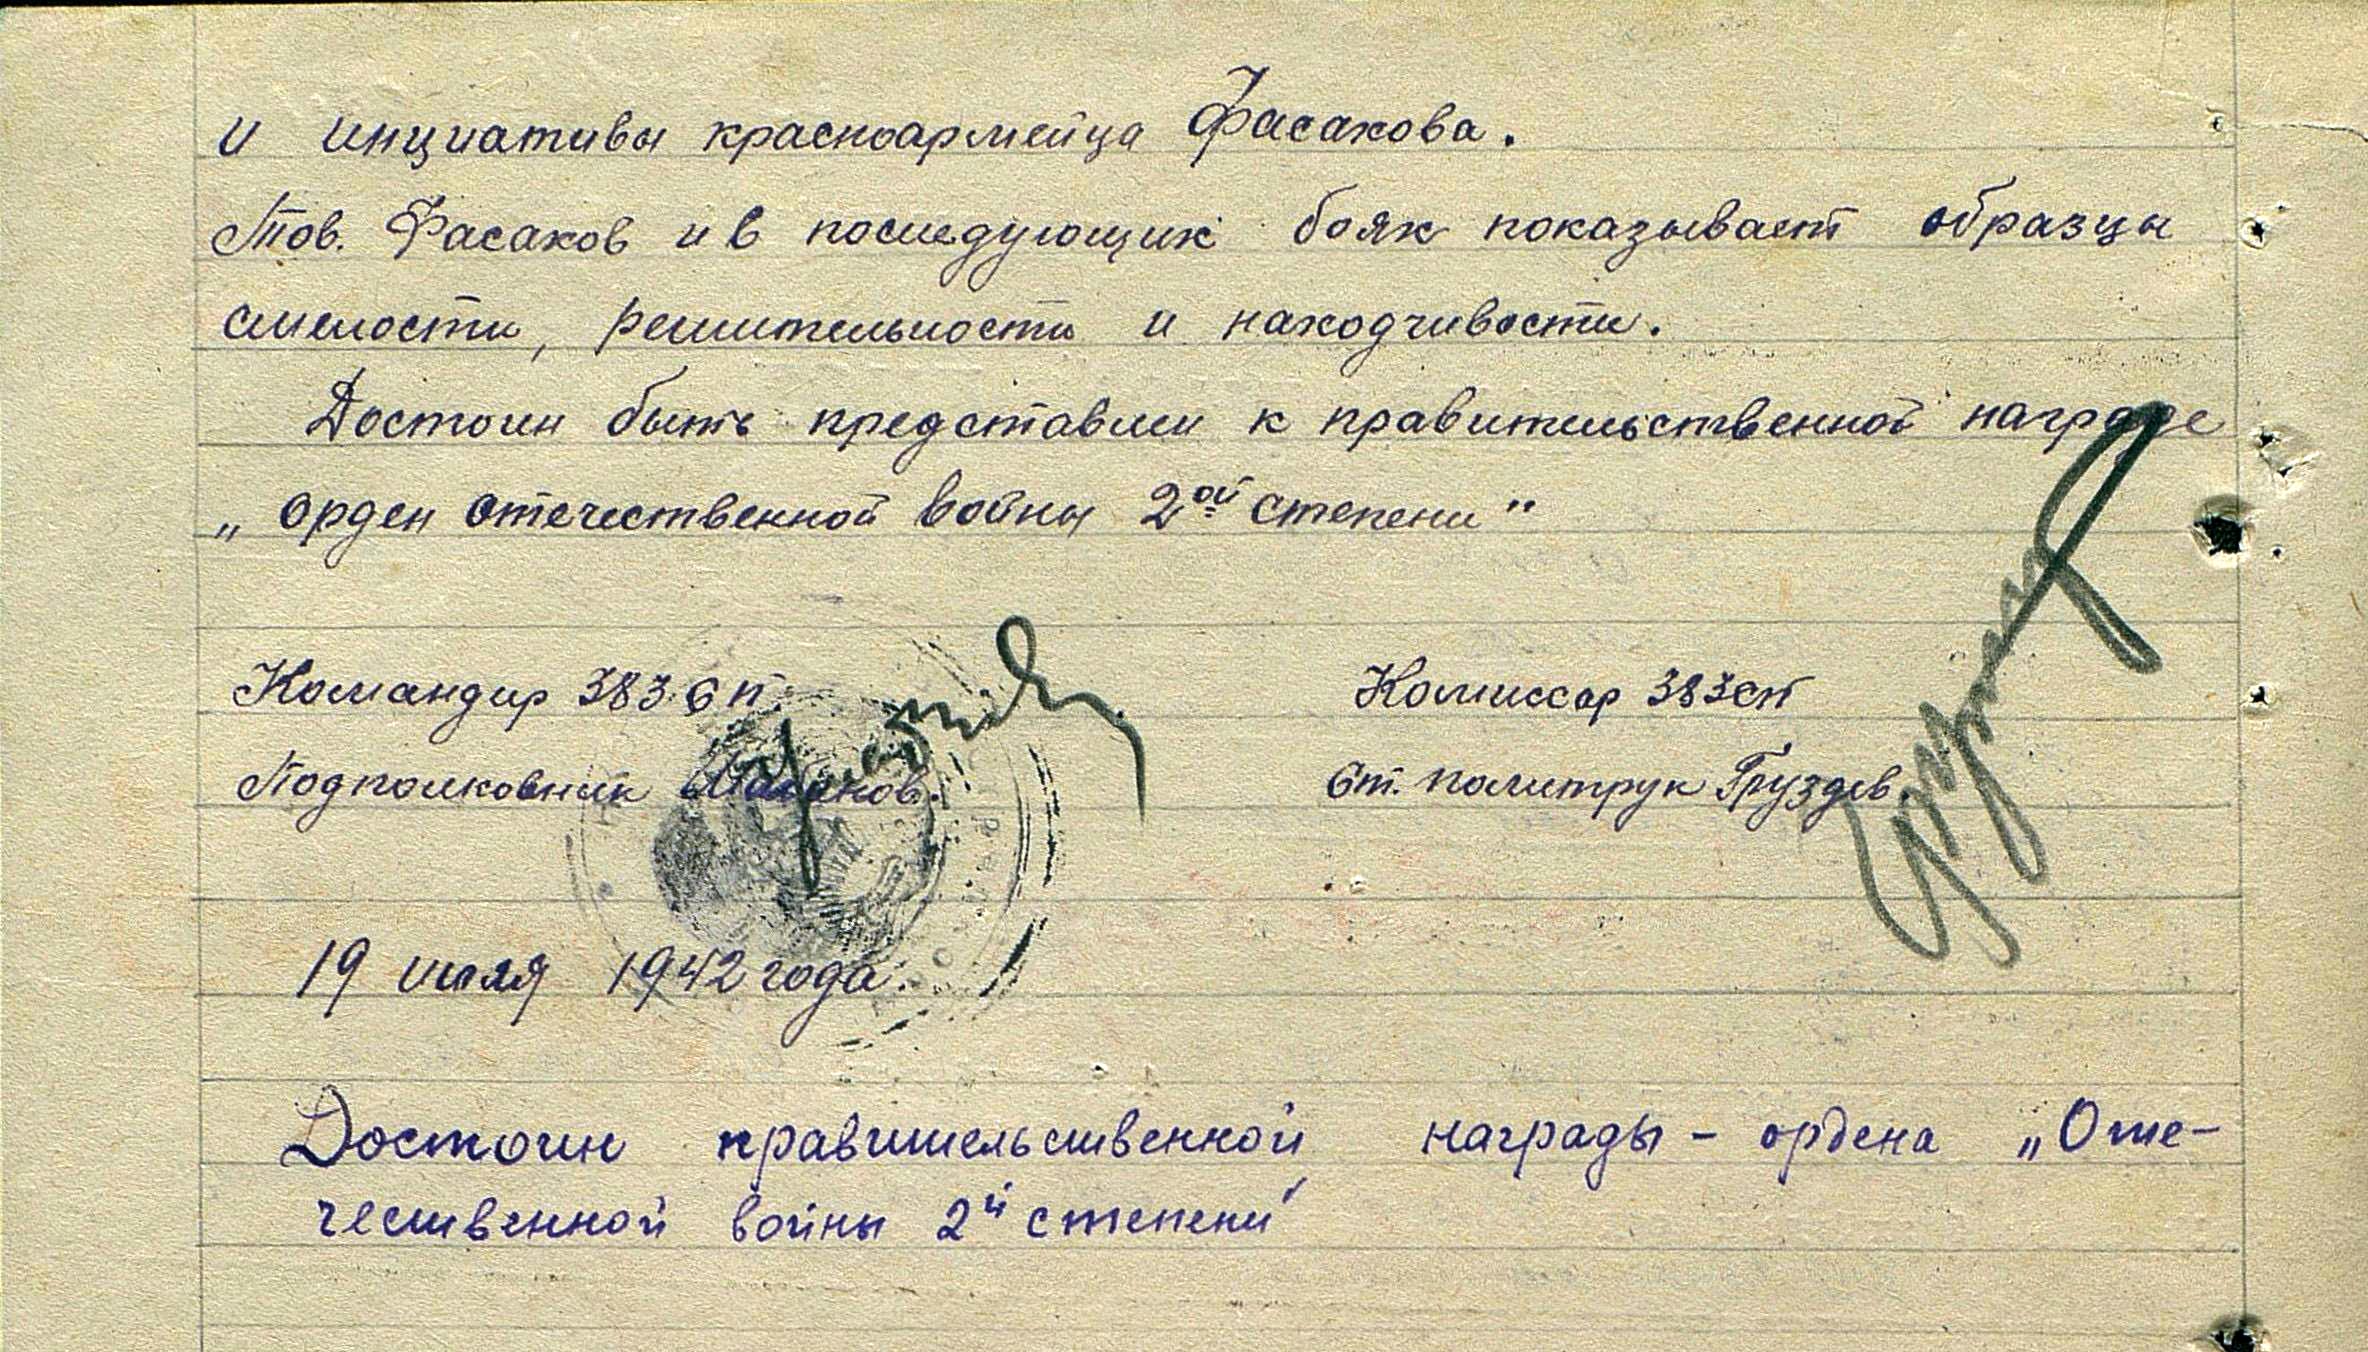 и инициативы красноармейца Фасахова.
Тов. Фасахов и в последующих боях показывает образцы
смелости, решительности и находчивости.
Достоин быть представлен к правительственной награде
„ орден отечественной войны 2ой степени"
Командир 383 сп. Комиссар 383 сп
Подполковник Шабанов. Ст. политрук Груздев.
19 июля 1942 года.
Достоин правительственной награды - ордена „Оте-
чественной войны 2й степени